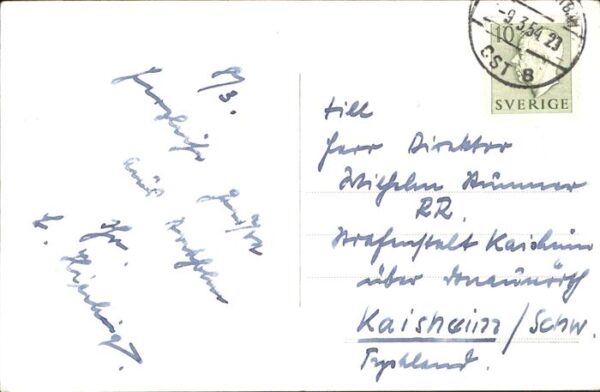 9/3.
Herzliche Grüsse
aus Stockholm
Ihr
till
Herr Direktor
Wilhelm Kümmer
RR.
Strafanstalt Kaisheim
über Donauwörth
Kaisheim/Schw.
Tyskland.
-9.3.54.23
ÖST 8
10
SVERIGE